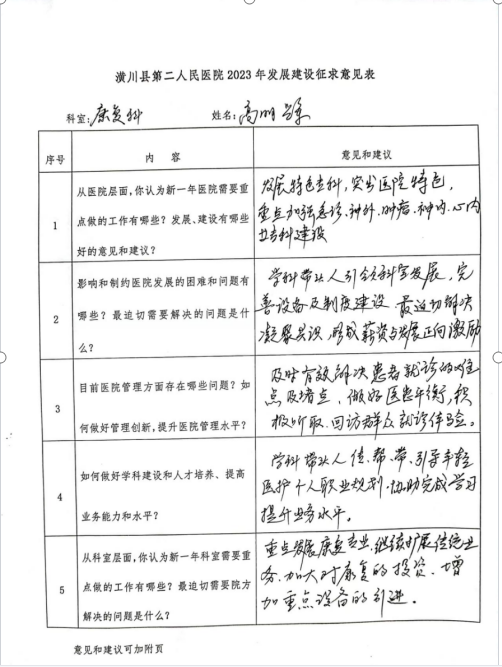 潢川县第二人民医院 2023 年发展建设征求意见表
科室: 康复科 姓名: 高明
序号 内 容 意见和建议
1
从医院层面,你认为新一年医院需要重
点做的工作有哪些?发展、建设有哪些
好的意见和建议?
发展特色专科,突出医院特色,
重点加强急诊、神外、肿瘤、神内、心内
专科建设
2
影响和制约医院发展的困难和问题有
哪些?最迫切需要解决的问题是什
么?
学科带头人引领科室发展,完
善设备及制度建设 最迫切解决
凝聚共识,形成薪资与发展正向激励
3
目前医院管理方面存在哪些问题?如
何做好管理创新,提升医院管理水平?
及时有效解决患者就诊的难
点及堵点,做好医患平衡,积
极听取、回访群众就诊体验。
4
如何做好学科建设和人才培养、提高
业务能力和水平?
学科带头人传、帮、带、引导年轻
医护个人职业规划,协助完成学习
提升业务水平。
5
从科室层面,你认为新一年科室需要重
点做的工作有哪些?最迫切需要院方
解决的问题是什么?
重点发展康复专业,继续扩展传统业
务、加大对康复的投资、增
加重点设备的引进。
意见和建议可加附页